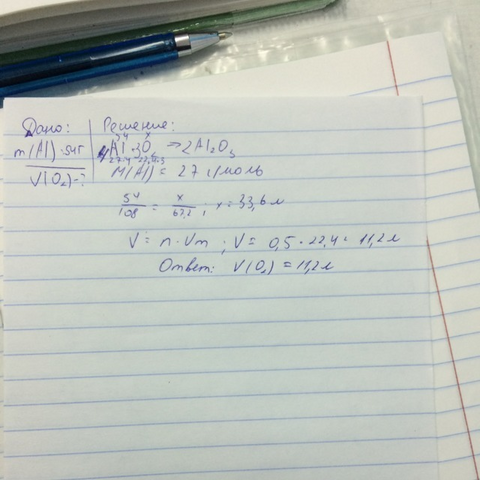 Дано:
Решение:
m(Al)=54г
V(O₂)-?
54 x
4Al+3O₂ → 2Al₂O₃
27·4 22,4·3
M(Al) = 27 г/моль
54/108 = x/67,2 ; x = 33,6 л
V = n·Vm ; V = 0,5 · 22,4 = 11,2 л
Ответ: V(O₂) = 11,2 л